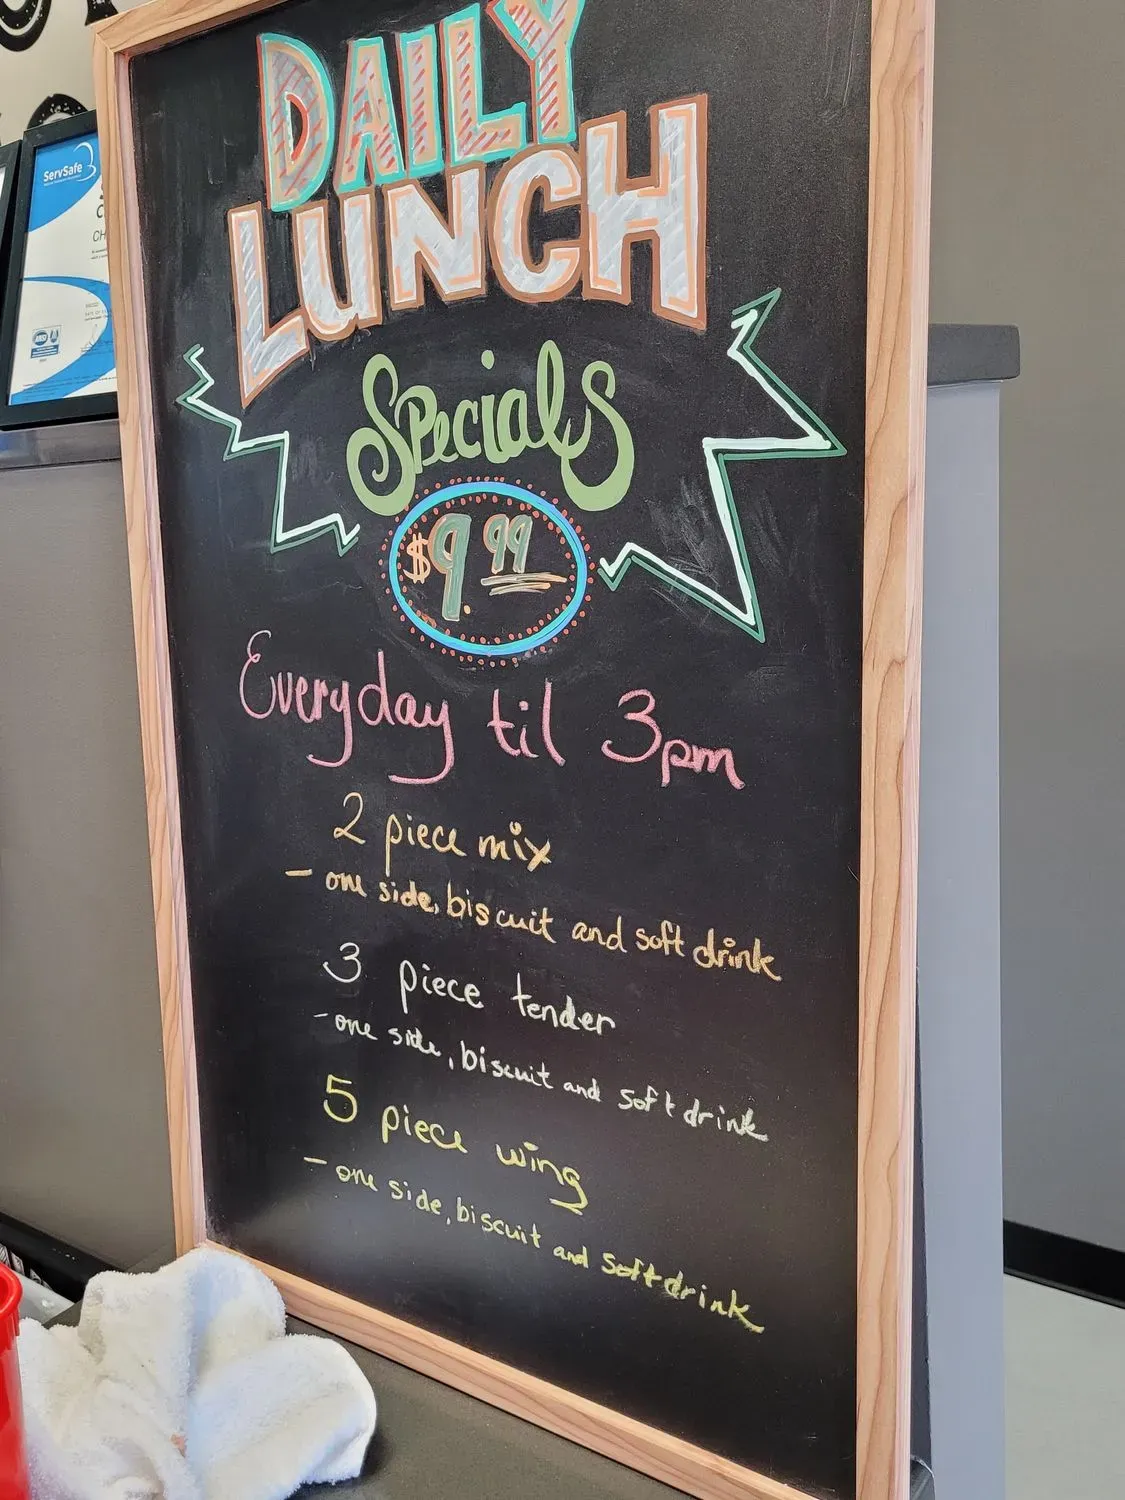 DAILY
LUNCH
Specials
$9.99
Everyday til 3pm
2 piece mix
- one side, biscuit and soft drink
3 piece tender
- one side, biscuit and soft drink
5 piece wing
- one side, biscuit and soft drink
ServSafe